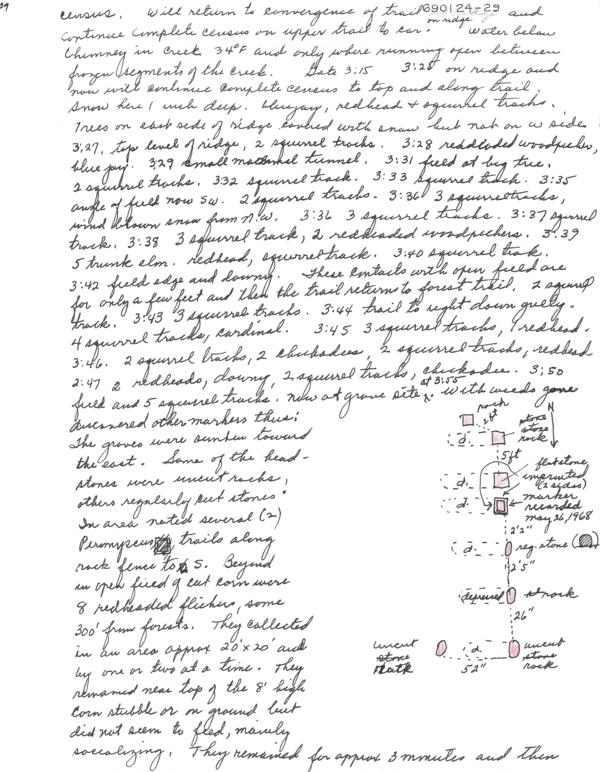 29
690124-29
census. Will return to convergence of trail on ridge and
continue complete census on upper trail to car. Water below
chimney in creek 34°F and only where running open between
frozen segments of the creek. Date 3:15 3:25 on ridge and
now will continue complete census to top and along trail.
Snow here 1 inch deep. bluejay, redhead + squirrel tracks.
Trees on east side of ridge covered with snow but not on w side.
3:27, top level of ridge, 2 squirrel tracks. 3:28 redheaded woodpecker,
blue jay. 3:29 small mammal tunnel. 3:31 field at big tree.
2 squirrel tracks. 3:32 squirrel track. 3:33 squirrel track. 3:35
angle of field now SW. 2 squirrel tracks. 3:36 3 squirrel tracks,
wind blown snow from N.W. 3:36 3 squirrel tracks. 3:37 squirrel
track. 3:38 3 squirrel track, 2 redheaded woodpeckers. 3:39
5 trunk elm. redhead, squirrel track. 3:40 squirrel track.
3:42 field edge and downy. These contacts with open field are
for only a few feet and then the trail return to forest trail. 2 squirrel
track. 3:43 3 squirrel tracks. 3:44 trail to right down gully.
4 squirrel tracks, cardinal. 3:45 3 squirrel tracks, 1 redhead.
3:46. 2 squirrel tracks, 2 chickadees, 2 squirrel tracks, redhead
2:47 2 redheads, downy, 2 squirrel tracks, chickadee. 3:50
field and 5 squirrel tracks. now at grave site at 3:55. With weeds gone
discovered other markers thus:
The graves were sunken toward
the east. Some of the head-
stones were uncut rocks,
others regularly cut stones.
In area noted several (2)
Peromyscus trails along
rock fence to S. Beyond
in open field of cut corn were
8 redheaded flickers, some
300' from forests. They collected
in an area approx 20'x20' and
by one or two at a time. They
remained near top of the 8' high
corn stubble or on ground but
did not seem to feed, mainly
socializing. They remained for approx 3 minutes and then
rock
2 ft
N
d.
stone
stone
rock
5 ft
d.
flat stone
imprinted
(2 sides)
d.
marker
recorded
May 26, 1968
2'2"
d.
reg. stone
2'5"
depressed
rock
26"
uncut
stone
d.
52"
uncut
stone
rock